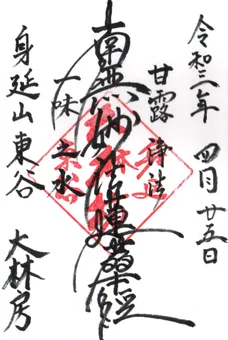 令和二年 四月 廿五日
甘露 待法
南無妙法蓮華経
一味 之水
身延山東谷 大林房